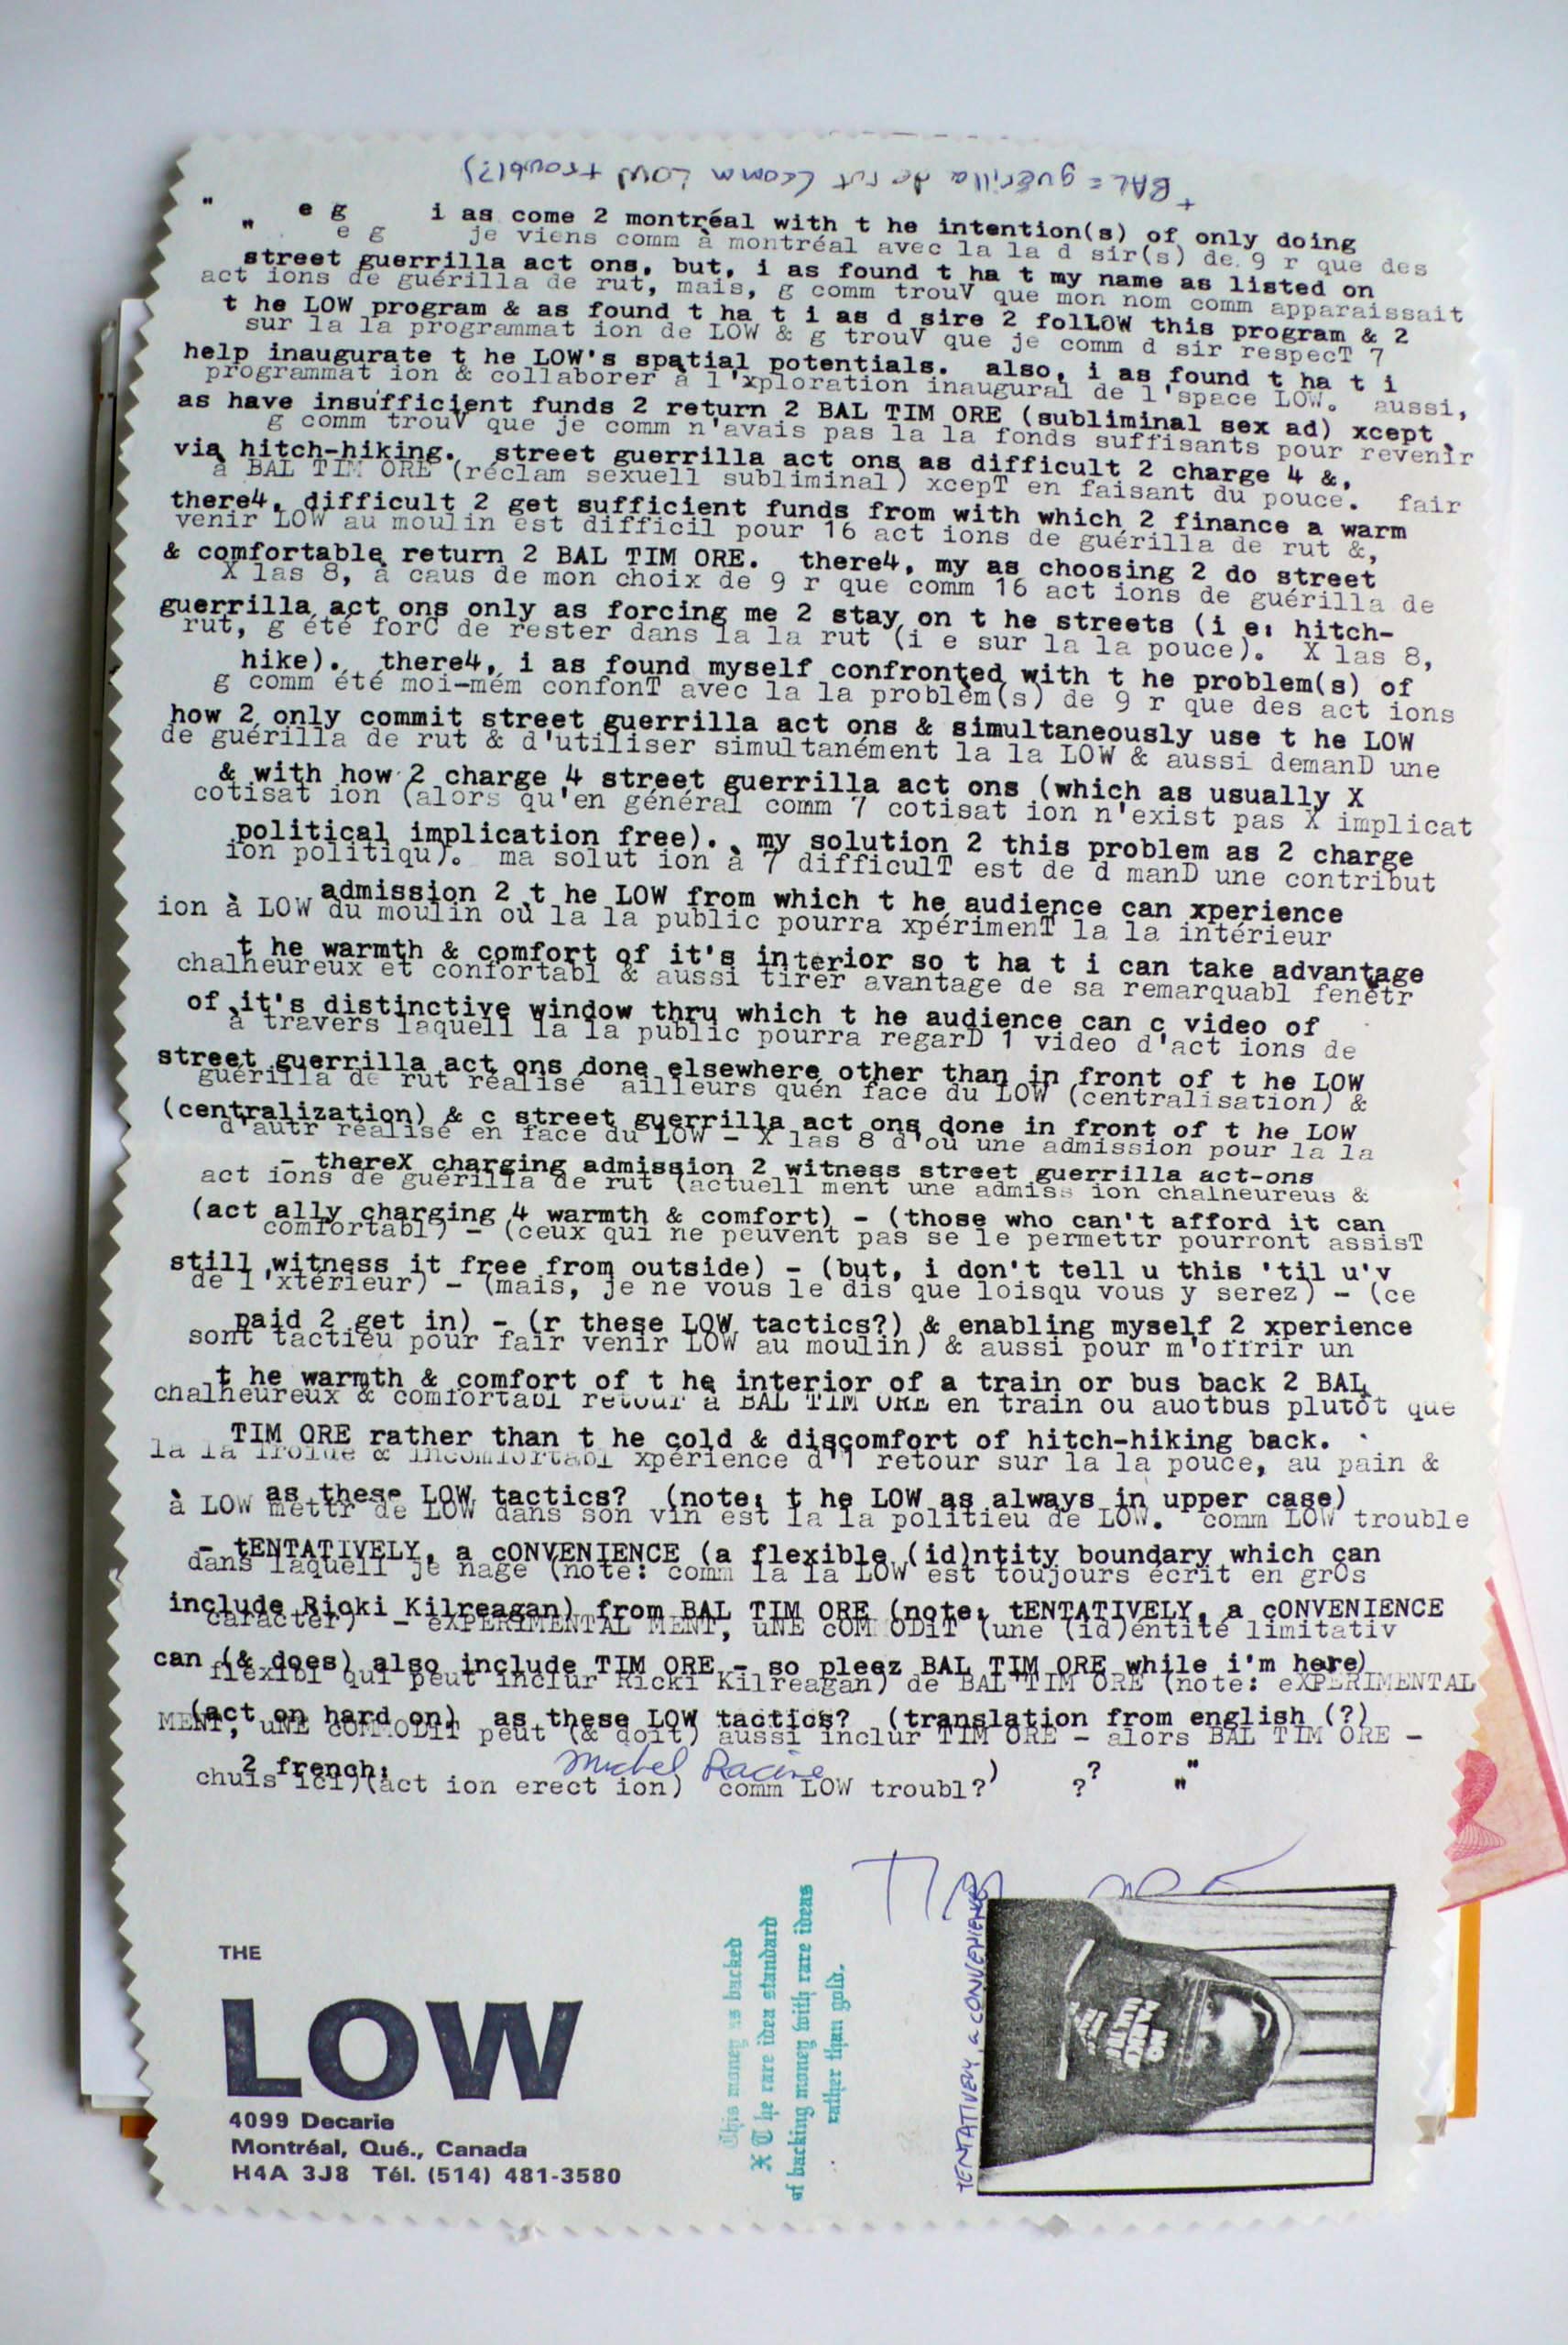 + BAL = guérilla de rut (comm LOW troubl?)
" e g i as come 2 montréal with t he intention(s) of only doing
" e g je viens comm à montréal avec la la d sir(s) de 9 r que des
street guerrilla act ons, but, i as found t ha t my name as listed on
act ions de guérilla de rut, mais, g comm trouV que mon nom comm apparaissait
t he LOW program & as found t ha t i as d sire 2 folLOW this program & 2
sur la la programmat ion de LOW & g trouV que je comm d sir respecT 7
help inaugurate t he LOW's spatial potentials. also, i as found t ha t i
programmat ion & collaborer à l'xploration inaugural de l'space LOW. aussi,
as have insufficient funds 2 return 2 BAL TIM ORE (subliminal sex ad) xcept
g comm trouV que je comm n'avais pas la la fonds suffisants pour revenir
via hitch-hiking. street guerrilla act ons as difficult 2 charge 4 &,
à BAL TIM ORE (réclam sexuell subliminal) xcepT en faisant du pouce. fair
there4, difficult 2 get sufficient funds from with which 2 finance a warm
venir LOW au moulin est difficil pour 16 act ions de guérilla de rut &,
& comfortable return 2 BAL TIM ORE. there4, my as choosing 2 do street
X las 8, à caus de mon choix de 9 r que comm 16 act ions de guérilla de
guerrilla act ons only as forcing me 2 stay on t he streets (i e: hitch-
rut, g été forC de rester dans la la rut (i e sur la la pouce). X las 8,
hike). there4, i as found myself confronted with t he problem(s) of
g comm été moi-mém confonT avec la la problèm(s) de 9 r que des act ions
how 2 only commit street guerrilla act ons & simultaneously use t he LOW
de guérilla de rut & d'utiliser simultanément la la LOW & aussi demanD une
& with how 2 charge 4 street guerrilla act ons (which as usually X
cotisat ion (alors qu'en général comm 7 cotisat ion n'exist pas X implicat
political implication free). my solution 2 this problem as 2 charge
ion politiqu). ma solut ion à 7 difficulT est de d manD une contribut
admission 2 t he LOW from which t he audience can xperience
ion à LOW du moulin où la la public pourra xpérimenT la la intérieur
t he warmth & comfort of it's interior so t ha t i can take advantage
chalheureux et confortabl & aussi tirer avantage de sa remarquabl fenêtr
of it's distinctive window thru which t he audience can c video of
à travers laquell la la public pourra regarD 1 video d'act ions de
street guerrilla act ons done elsewhere other than in front of t he LOW
guérilla de rut réalisé ailleurs quén face du LOW (centralisation) &
(centralization) & c street guerrilla act ons done in front of t he LOW
d'autr réalisé en face du LOW - X las 8 d'où une admission pour la la
- thereX charging admission 2 witness street guerrilla act-ons
act ions de guérilla de rut (actuell ment une admiss ion chalheureus &
(act ally charging 4 warmth & comfort) - (those who can't afford it can
comfortabl) - (ceux qui ne peuvent pas se le permettr pourront assisT
still witness it free from outside) - (but, i don't tell u this 'til u'v
de l'xtérieur) - (mais, je ne vous le dis que loisqu vous y serez) - (ce
paid 2 get in) - (r these LOW tactics?) & enabling myself 2 xperience
sont tactieu pour fair venir LOW au moulin) & aussi pour m'offrir un
t he warmth & comfort of t he interior of a train or bus back 2 BAL
chalheureux & comfortabl retour à BAL TIM ORE en train ou auotbus plutôt que
TIM ORE rather than t he cold & discomfort of hitch-hiking back.
la la froide & incomfortabl xpérience d'1 retour sur la la pouce, au pain &
as these LOW tactics? (note: t he LOW as always in upper case)
à LOW mettr de LOW dans son vin est la la politieu de LOW. comm LOW trouble
- tENTATIVELY, a cONVENIENCE (a flexible (id)ntity boundary which can
dans laquell je nage (note: comm la la LOW est toujours écrit en grOs
include Ricki Kilreagan) from BAL TIM ORE (note: tENTATIVELY, a cONVENIENCE
caractèr) - eXPERIMENTAL MENT, uNE COM ODiT (une (id)entité limitativ
can (& does) also include TIM ORE - so pleez BAL TIM ORE while i'm here)
flexibl qui peut inclur Ricki Kilreagan) de BAL TIM ORE (note: eXPERIMENTAL
(act on hard on) as these LOW tactics? (translation from english (?)
MENT, uNE COMMODiT peut (& doit) aussi inclur TIM ORE - alors BAL TIM ORE -
2 french: Michel Racine) ? "
chuis ici)(act ion erect ion) comm LOW troubl? ? "
TIM ORE
THE
LOW
4099 Decarie
Montréal, Qué., Canada
H4A 3J8 Tél. (514) 481-3580
This money as backed
X The rare idea standard
of backing money with rare ideas
rather than gold.
tENTATIVELY, a cONVENIENCE